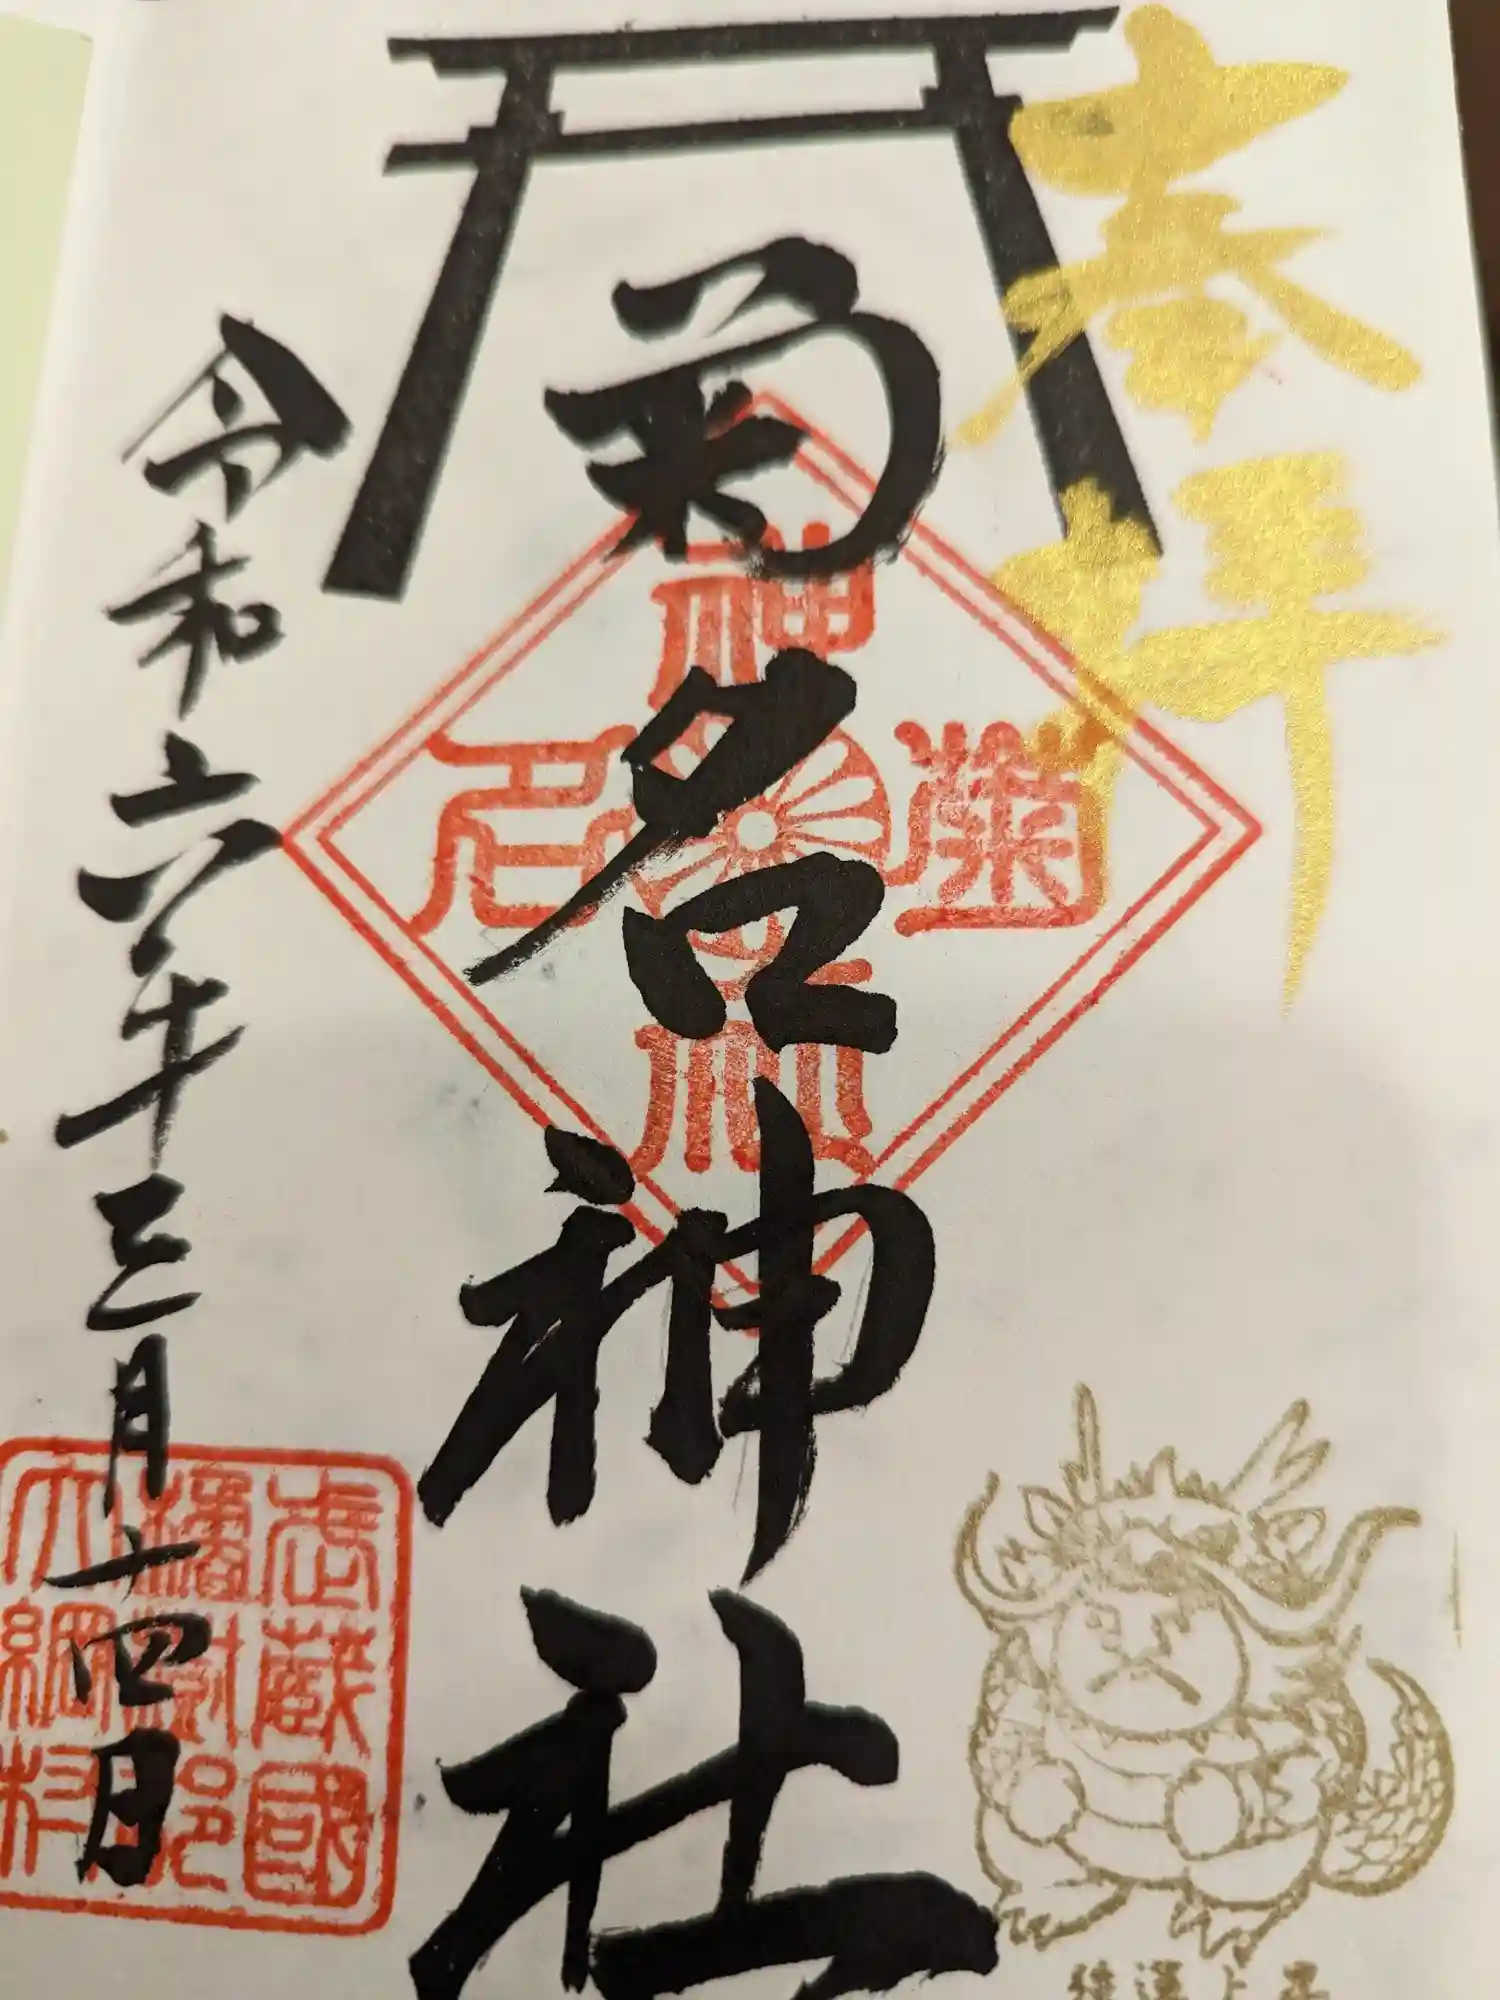 奉拝
菊名神社
菊
名
神
社
令和六年三月十四日
武蔵國
橘樹郡
大綱村
強運上昇